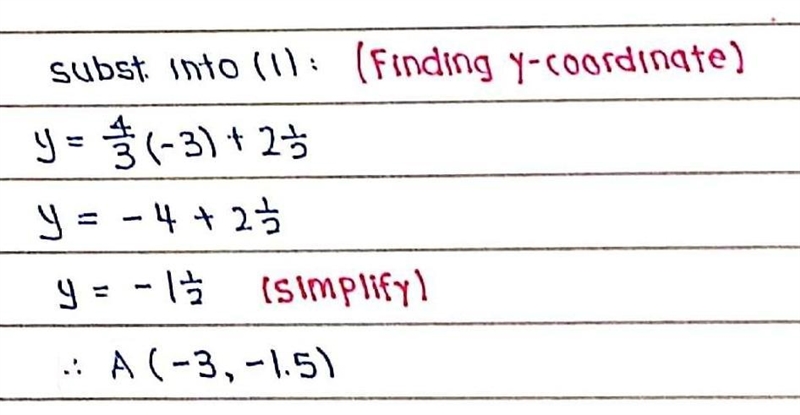 subst. into (1): (Finding y-coordinate)
y = 4/3 (-3) + 2 1/2
y = -4 + 2 1/2
y = -1 1/2 (simplify)
∴ A (-3, -1.5)